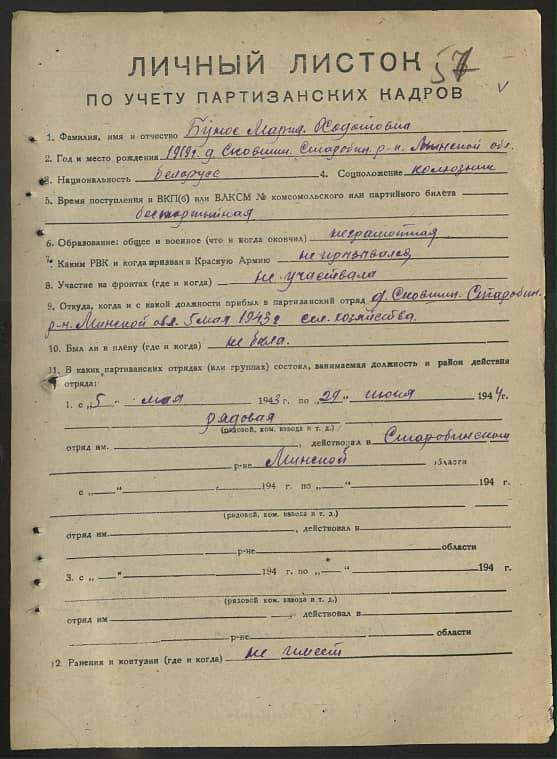 57
ЛИЧНЫЙ ЛИСТОК
ПО УЧЕТУ ПАРТИЗАНСКИХ КАДРОВ
1. Фамилия, имя и отчество Мария
2. Год и место рождения 1919г. д. Сковшин. Стадобин. р-н. Минской обл.
3. Национальность белорусс 4. Соцположение колхозник
5. Время поступления в ВКП(б) или ВЛКСМ № комсомольского или партийного билета
беспартийная
6. Образование: общее и военное (что и когда окончил) неграмотная
7. Каким РВК и когда призван в Красную Армию не призывался
8. Участие на фронтах (где и когда) не участвовала
9. Откуда, когда и с какой должности прибыл в партизанский отряд д. Сковшин. Старобин.
р-н. Минской обл. 5 мая 1943г сел. хозяйства.
10. Был ли в плену (где и когда) не была.
11. В каких партизанских отрядах (или группах) состоял, занимаемая должность и район действия
отряда:
1. с „5 “ мая 1943 г. по „29“ июня 1944г.
рядовая
(рядовой, ком. взвода и т. д.)
отряд им. , действовал в Старобинском
р-не Минской области
с „ “ 194 г. по „ “ 194 г.
(рядовой, ком. взвода и т. д.)
отряд им. , действовал в
р-не области
3. с „ “ 194 г. по „ “ 194 г.
(рядовой, ком. взвода и т. д.)
отряд им , действовал в
р-не области
12. Ранения и контузии (где и когда) не имеет